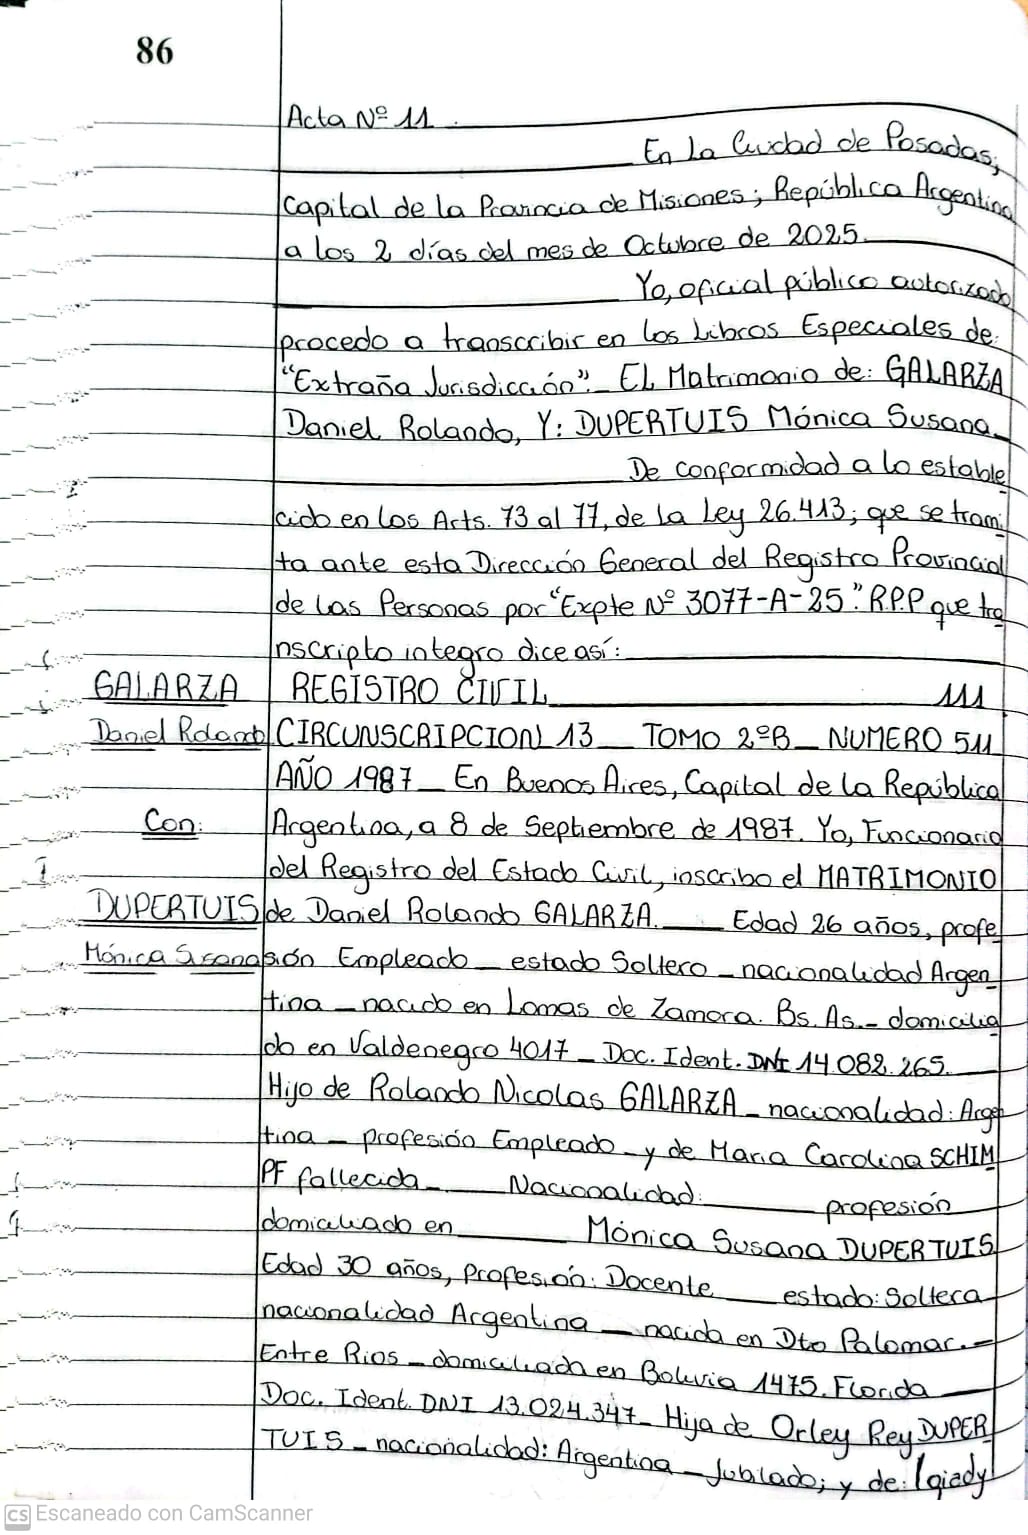 86
Acta Nº 11
En la Ciudad de Posadas,
Capital de la Provincia de Misiones; República Argentina
a los 2 días del mes de Octubre de 2025.
Yo, oficial público autorizado
procedo a transcribir en los Libros Especiales de:
"Extraña Jurisdicción". EL Matrimonio de: GALARZA
Daniel Rolando, Y: DUPERTUIS Mónica Susana.
De conformidad a lo estable
cido en los Arts. 73 al 77, de la Ley 26.413; que se trami
ta ante esta Dirección General del Registro Provincial
de las Personas por "Expte Nº 3077-A-25". R.P.P que tra
nscripto integro dice así:
GALARZA REGISTRO CIVIL 111
Daniel Rolando CIRCUNSCRIPCION 13 _ TOMO 2ºB _ NUMERO 511
AÑO 1987 _ En Buenos Aires, Capital de la República
Con: Argentina, a 8 de Septiembre de 1987. Yo, Funcionario
del Registro del Estado Civil, inscribo el MATRIMONIO
DUPERTUIS de Daniel Rolando GALARZA. _ Edad 26 años, profe
Mónica Susana sión Empleado _ estado Soltero _ nacionalidad Argen
tina _ nacido en Lomas de Zamora. Bs. As. - domicilia
do en Valdenegro 4017 _ Doc. Ident. DNI 14.082.265.
Hijo de Rolando Nicolas GALARZA _ nacionalidad: Argen
tina _ profesión Empleado _ y de Maria Carolina SCHIM
PF fallecida _ Nacionalidad: profesión
domiciliado en Mónica Susana DUPERTUIS
Edad 30 años, profesión: Docente _ estado: Soltera
nacionalidad Argentina _ nacida en Dto Palomar. -
Entre Rios _ domiciliada en Bolivia 1475. Florida
Doc. Ident. DNI 13.024.347 _ Hija de Orley Rey DUPER
TUIS _ nacionalidad: Argentina _ Jubilado; y de:
CS Escaneado con CamScanner